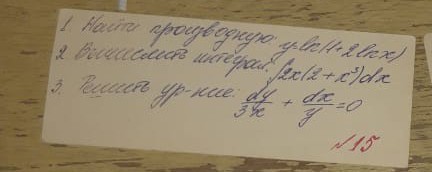 1. Найти производную: y ln(1+2lnx)
2. Вычислить интеграл: ∫2x(2+x³)dx
3. Решить ур-ние: dy/3x + dx/y =0
№15